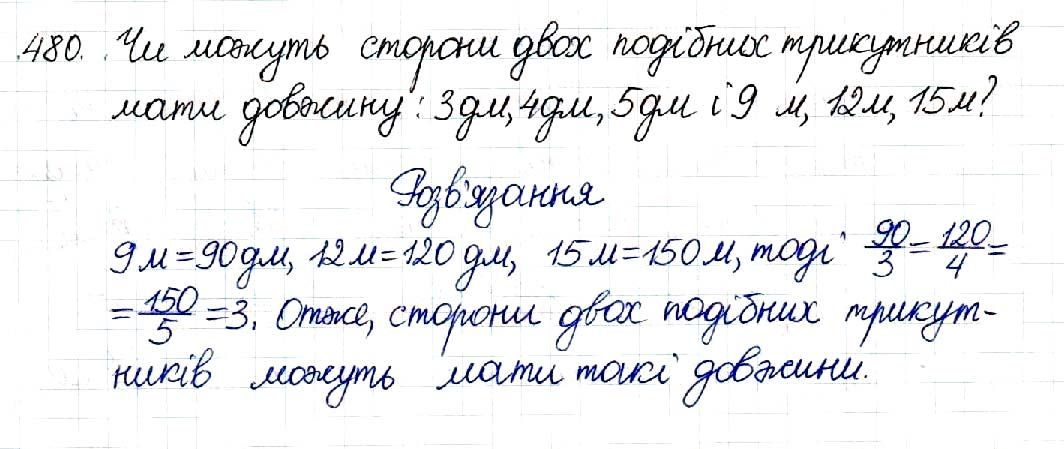 480. Чи можуть сторони двох подібних трикутників
мати довжину: 3дм, 4дм, 5дм і 9 м, 12м, 15м?
Розв'язання
9м=90дм, 12м=120дм, 15м=150м, тоді 90/3=120/4=
=150/5=3. Отже, сторони двох подібних трикут-
ників можуть мати такі довжини.